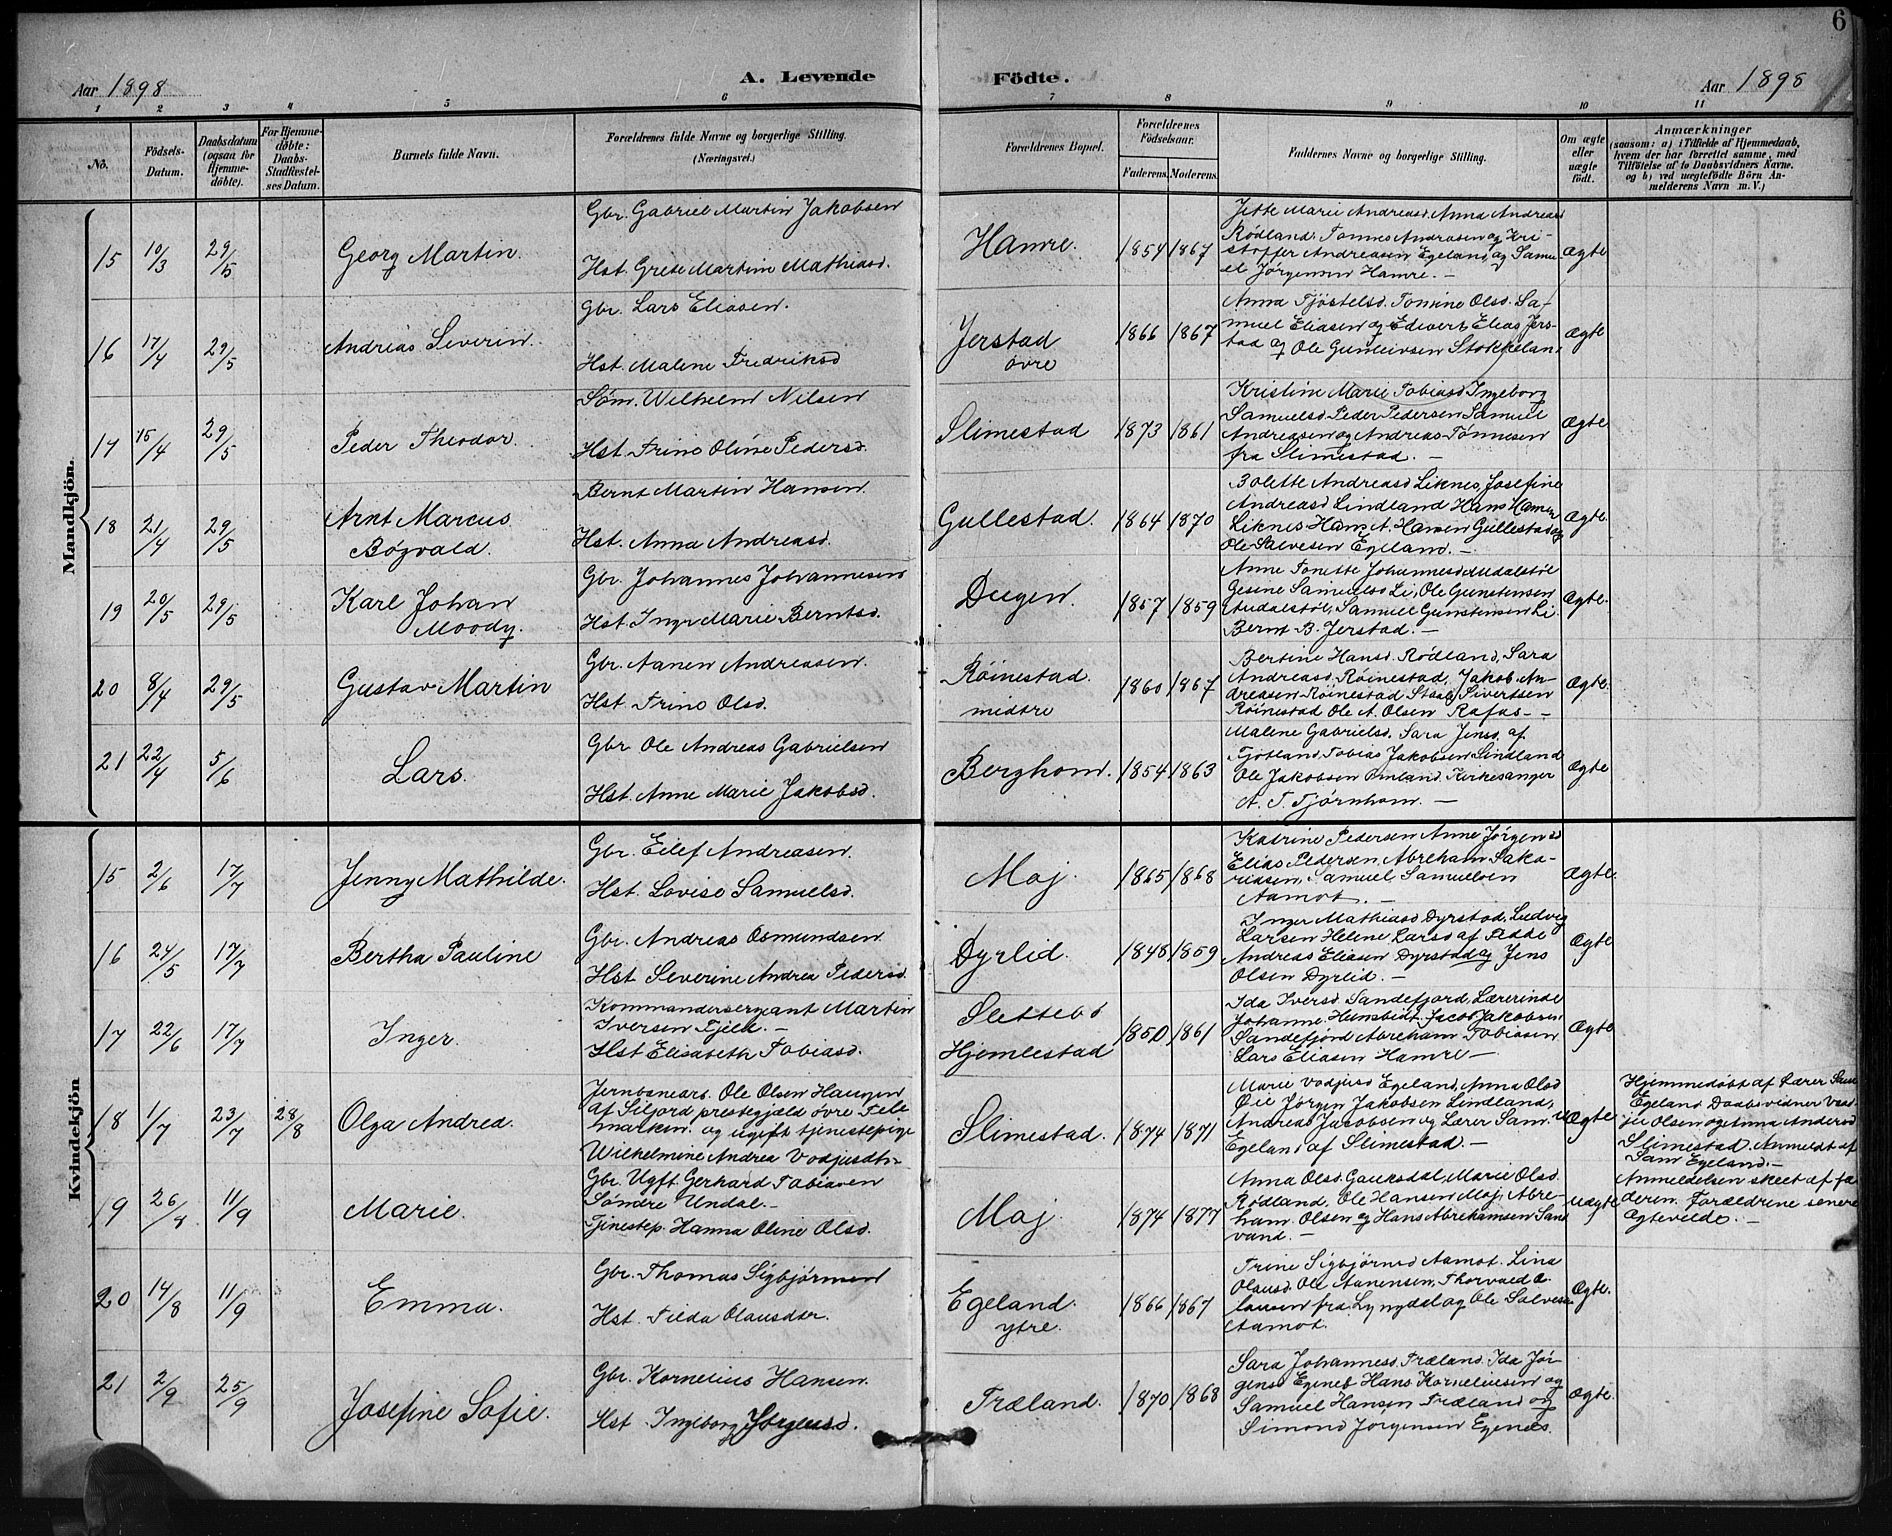 6
Aar 1898
A. Levende
Födte.
Aar 1898
1 2 3 4 5 6 7 8 9 10 11
No.
Födsels-Datum.
Daabsdatum (ogsaa for Hjemmedöbte).
For Hjemmedöbte: Daabs-Stadfæstelses Datum.
Barnets fulde Navn.
Forældrenes fulde Navne og borgerlige Stilling. (Næringsvei.)
Forældrenes Bopæl.
Forældrenes Födselsaar.
Faderens. Moderens.
Faddernes Navne og borgerlige Stilling.
Om ægte eller uægte födt.
Anmærkninger
(saasom: a) i Tilfælde af Hjemmedaab,
hvem der har forrettet samme, med
Tilföielse af to Daabsvidners Navne.
og b) ved uægtefödte Börn An-
melderens Navn m. V.)
Mandkjön.
15 10/3 29/5
Georg Martin.
Gbr. Gabriel Martin Jakobsen
Hst. Grete Martine Mathiasd.
Hamre.
1854 1867
Jitte Marie Andreasd. Anna Andreasd
Rødland. Tønnes Andreasen og Kri-
stoffer Andreasen Egeland, og Samu-
el Jørgensen Hamre. —
Ægte
16 17/4 29/5
Andreas Severin.
Gbr. Lars Eliasen.
Hst. Malene Fredriksd
Jerstad
øvre
1866 1867
Anna Tjøstelsd. Tomine Olsd. Sa-
muel Eliasen og Edvert Elias Jers-
tad og Ole Gunleivsen Stokkeland
Ægte
17 15/4 29/5
Peder Theodor.
Søm. Wilhelm Nilsen
Hst. Trine Oline Pedersd.
Slimestad
1873 1861
Kristine Marie Tobiasd Ingeborg
Samuelsd. Peder Pedersen Samuel
Andreasen og Andreas Tønnesen
fra Slimestad. —
Ægte
18 21/4 29/5
Arnt Marcus
Bøgvald.
Bernt Martin Hansen.
Hst. Anna Andreasd.
Gullestad.
1864 1870
Bolette Andreasd Liknes, Josefine
Andreasd Lindland Hans Hansen
Liknes Hans A. Hansen Gullestad og
Ole Salvesen Egeland. —
Ægte.
19 20/5 29/5
Karl Johan
Moody.
Gbr. Johannes Johannesen
Hst. Ingr Marie Berntsd.
Dugen.
1857 1859
Anne Tonette Johannesd Audalstøl
Gesine Samuelsd Li, Ole Gunstensen
Audalstøl, Samuel Gunstensen Li
Bernt B. Jerstad. —
Ægte.
20 8/4 29/5
Gustav Martin
Gbr. Aanen Andreasen.
Hst. Trine Olsd.
Røinestad.
midtre
1860 1867
Bertine Hansd. Rødland, Sara
Andreasd. Røinestad. Jakob An-
dreasen Røinestad Sivertsen
Røinestad Ole A. Olsen Rafos. —
Ægte.
21 22/4 5/6
Lars.
Gbr Ole Andreas Gabrielsen
Hst. Anne Marie Jakobsd.
Berghom.
1854 1863
Malene Gabrielsd. Sara Jensd. af
Fjotland, Tobias Jakobsen Lindland
Ole Jakobsen Omland. Kirkesanger
A. T. Tjørnhom. —
Ægte
Kvindekjön
15 2/6 17/7
Jenny Mathilde.
Gbr. Eilef Andreasen.
Hst. Lovise Samuelsd.
Moj.
1865 1868
Katrine Pedersen Anne Jørgensd
Elias Pedersen. Abreham Saka-
riasen, Samuel Samuelsen
Aamot. —
Ægte.
16 24/5 17/7
Bertha Pauline
Gbr. Andreas Osmundsen.
Hst Severine Andrea Pedersd.
Dyrlid.
1848 1859
Inger Mathiasd Dyrstad, Ludvig
Larsen Helene Larsd af Fedde
Andreas Eliasen Dyrstad og Jens
Olsen Dyrlid. —
Ægte
17 22/6 17/7
Inger.
Kommandersergeant Martin
Iversen Fjeld. —
Hst Elisabeth Tobiasd.
Slettebø
Hjemlestad
1850 1861
Ida Iversd. Sandefjord, Lærerinde
Johanne Jacob Jakobsen
Sandefjord Abreham Tobiasen
Lars Eliasen Hamre —
Ægte
18 1/7 23/7 28/8
Olga Andrea.
Jernbanearb. Ole Olsen Haugen
af Siljord prestegjæld øvre Tele
marken. og ugift tjenestepige
Wilhelmine Andrea Vodjusdtr
Slimestad.
1874 1871
Marie Vodjusd Egeland, Anna Olsd
Øie Jørgen Jakobsen Lindland,
Andreas Jacobsen og Lærer Sam.
Egeland af Slimestad —
Ægte
Hjemmedøbt af Lærer Sam
Egeland Daabsvidner Vod-
jus Olsen og Anna Andersd
Slimestad Anmeldt af
Sam Egeland. —
19 26/8 11/9
Marie.
Gbr. Ugft Gerhard Tobiasen
Søndre Undal. —
Tjenestep. Hanna Oline Olsd.
Moj.
1874 1877
Anna Olsd. Gauksdal, Marie Olsd.
Rødland, Ole Hansen Moj, Abre-
ham Olsen og Hans Abrehamsen Sand
vand. —
Uægte
Anmeldelsen skeet af fa-
deren. Forældrene senere
Ægtevilde. —
20 14/8 11/9
Emma.
Gbr. Thomas Sigbjørnsen
Hst. Tilda Olausdtr.
Egeland.
ytre.
1866 1867
Trine Sigbjørnsd Aamot. Lina
Olausd. Ole Aanensen, Thorvald O-
lausen fra Lyngdal og Ole Salvesen
Aamot.
Ægte.
21 2/9 25/9
Josefine Sofie.
Gbr. Kornelius Hansen.
Hst. Ingeborg Jørgensd.
Træland.
1870 1868
Sara Johannesd. Træland. Ida Jør-
gensd Egenes Hans Korneliusen og
Samuel Hansen Træland og
Simond Jørgensen Egenes.
Ægte.